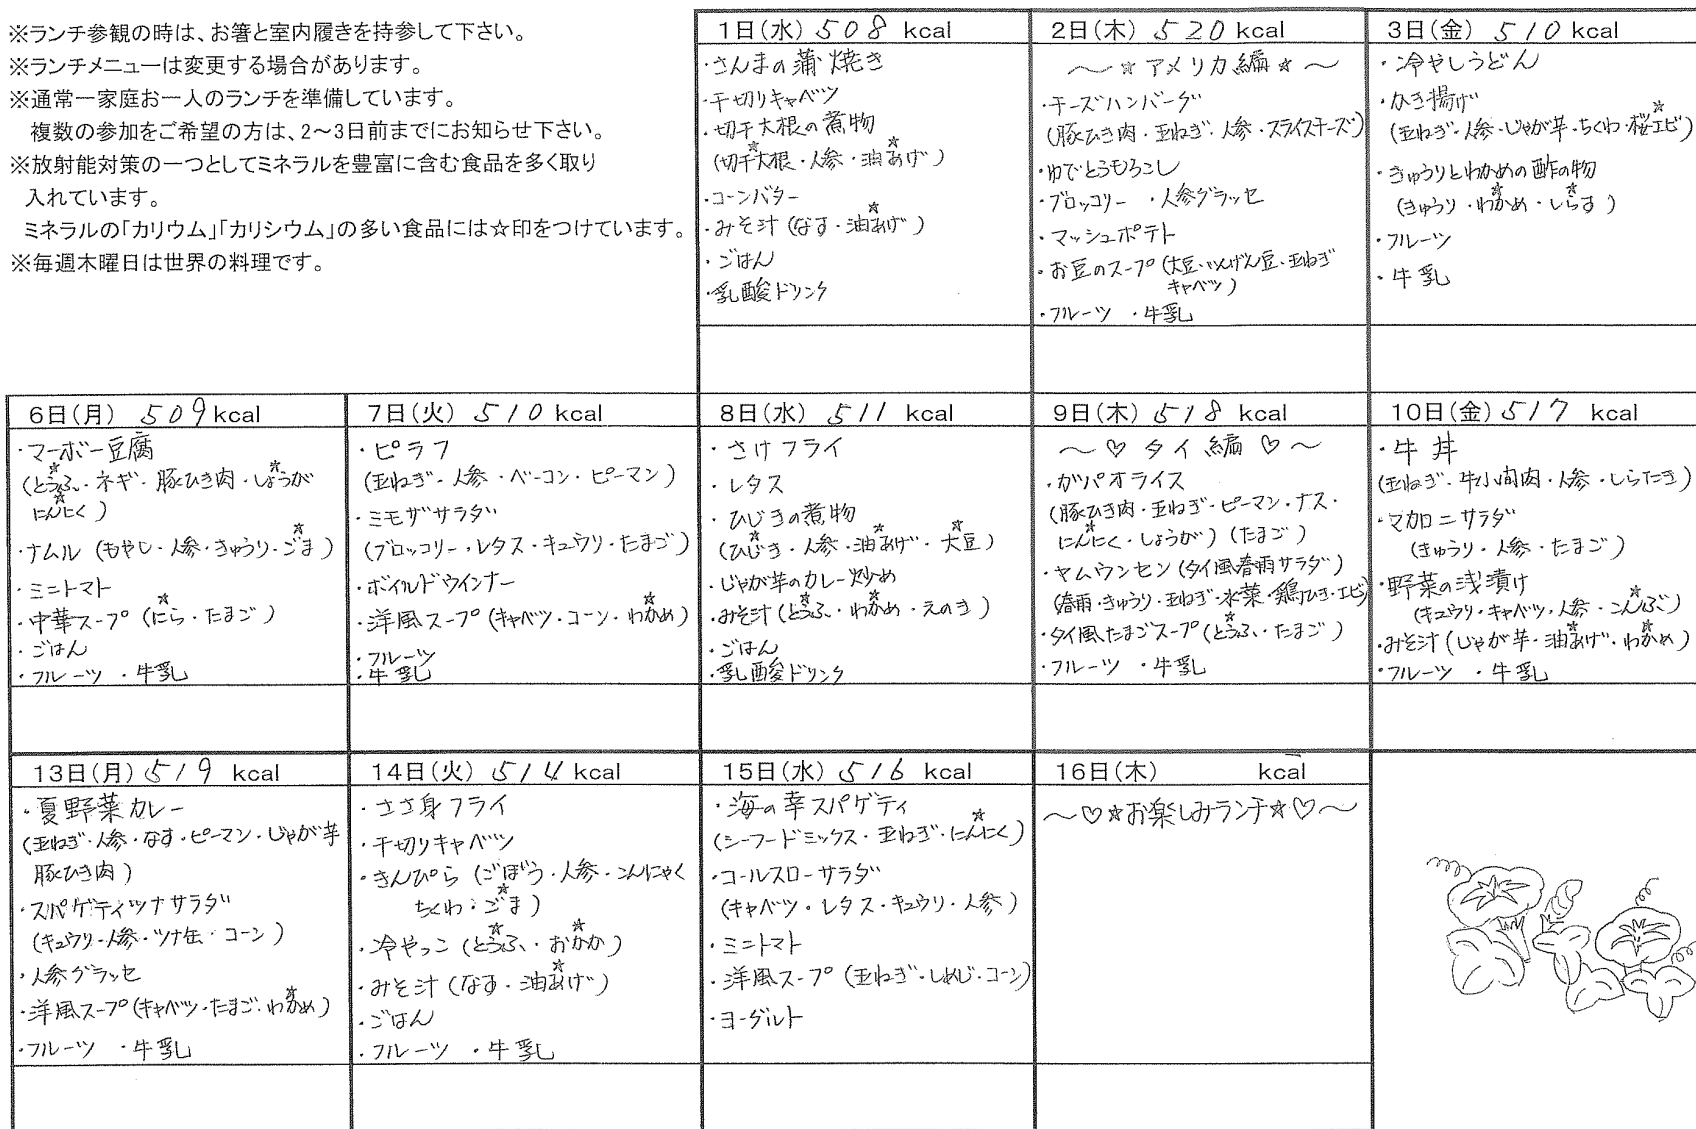 ※ランチ参観の時は、お箸と室内履きを持参して下さい。
※ランチメニューは変更する場合があります。
※通常一家庭お一人のランチを準備しています。
複数の参加をご希望の方は、2～3日前までにお知らせ下さい。
※放射能対策の一つとしてミネラルを豊富に含む食品を多く取り
入れています。
ミネラルの「カリウム」「カリシウム」の多い食品には☆印をつけています。
※毎週木曜日は世界の料理です。
1日(水) 508 kcal
・さんまの蒲焼き
・千切りキャベツ
・切干大根の煮物
(切干大根☆・人参・油あげ)
・コーンバター
・みそ汁(なす・油あげ☆)
・ごはん
・乳酸ドリンク
2日(木) 520 kcal
～☆アメリカ編☆～
・チーズハンバーグ
(豚ひき肉・玉ねぎ・人参・スライスチーズ)
・ゆでとうもろこし
・ブロッコリー ・人参グラッセ
・マッシュポテト
・お豆のスープ(大豆・いんげん豆・玉ねぎ
キャベツ)
・フルーツ ・牛乳
3日(金) 510 kcal
・冷やしうどん
・かき揚げ
(玉ねぎ・人参・じゃが芋・ちくわ・桜エビ☆)
・きゅうりとわかめの酢の物
(きゅうり・わかめ☆・しらす☆)
・フルーツ
・牛乳
6日(月) 509 kcal
・マーボー豆腐
(とうふ☆・ネギ・豚ひき肉・しょうが☆
にんにく☆)
・ナムル(もやし・人参・きゅうり・ごま☆)
・ミニトマト
・中華スープ(にら☆・たまご)
・ごはん
・フルーツ ・牛乳
7日(火) 510 kcal
・ピラフ
(玉ねぎ・人参・ベーコン・ピーマン)
・ミモザサラダ
(ブロッコリー・レタス・キュウリ・たまご)
・ボイルドウインナー
・洋風スープ(キャベツ・コーン・わかめ☆)
・フルーツ
・牛乳
8日(水) 511 kcal
・さけフライ
・レタス
・ひじきの煮物
(ひじき☆・人参・油あげ☆・大豆☆)
・じゃが芋のカレー炒め
・みそ汁(とうふ☆・わかめ☆・えのき)
・ごはん
・乳酸ドリンク
9日(木) 518 kcal
～♡タイ編♡～
・ガパオライス
(豚ひき肉・玉ねぎ・ピーマン・ナス・
にんにく☆・しょうが)(たまご)
・ヤムウンセン(タイ風春雨サラダ)
(春雨・きゅうり・玉ねぎ・水菜・鶏ひき・エビ)
・タイ風たまごスープ(とうふ☆・たまご)
・フルーツ ・牛乳
10日(金) 517 kcal
・牛丼
(玉ねぎ・牛小間肉・人参・しらたき)
・マカロニサラダ
(きゅうり・人参・たまご)
・野菜の浅漬け
(キュウリ・キャベツ・人参・こんぶ☆)
・みそ汁(じゃが芋・油あげ☆・わかめ☆)
・フルーツ ・牛乳
13日(月) 519 kcal
・夏野菜カレー
(玉ねぎ・人参・なす・ピーマン・じゃが芋
豚ひき肉)
・スパゲティツナサラダ
(キュウリ・人参・ツナ缶・コーン)
・人参グラッセ
・洋風スープ(キャベツ・たまご・わかめ☆)
・フルーツ ・牛乳
14日(火) 514 kcal
・ささ身フライ
・千切りキャベツ
・きんぴら(ごぼう・人参・こんにゃく
ちくわ・ごま☆)
・冷やっこ(とうふ☆・おかか☆)
・みそ汁(なす・油あげ☆)
・ごはん
・フルーツ ・牛乳
15日(水) 516 kcal
・海の幸スパゲティ
(シーフードミックス・玉ねぎ・にんにく☆)
・コールスローサラダ
(キャベツ・レタス・キュウリ・人参)
・ミニトマト
・洋風スープ(玉ねぎ・しめじ・コーン)
・ヨーグルト
16日(木) kcal
～♡☆お楽しみランチ☆♡～